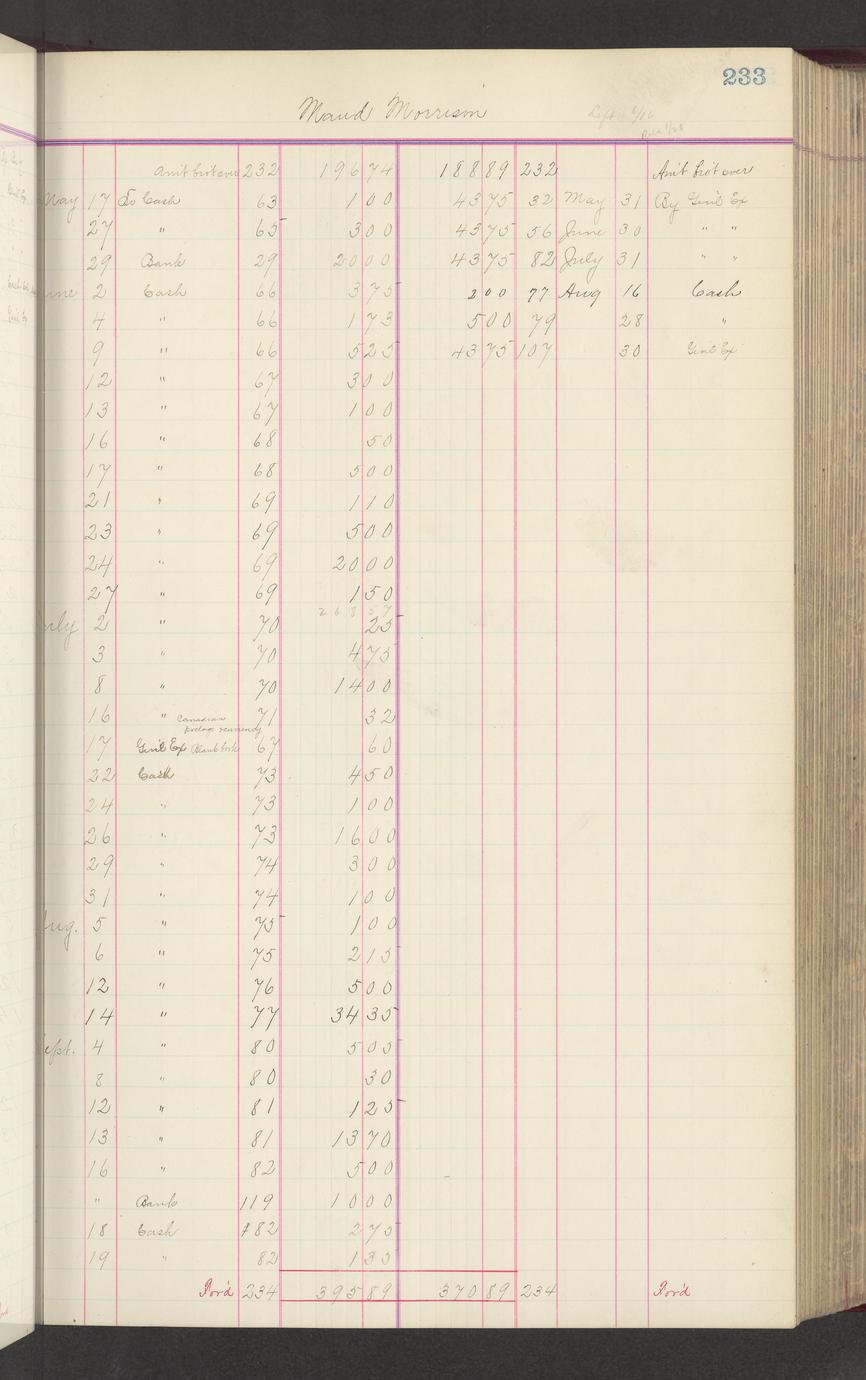 233
Maud Morrison
Left 6/16
Am't bro't over 232 196 74 188 89 232 Am't bro't over
May 17 To Cash 63 1 00 43 75 32 May 31 By Gen'l Ex
27 " 65 3 00 43 75 56 June 30 " "
29 Bank 29 20 00 43 75 82 July 31 " "
une 2 Cash 66 3 75 2 00 77 Aug 16 Cash
4 " 66 1 73 5 00 79 28 "
9 " 66 5 25 43 75 107 30 Gen'l Ex
12 " 67 3 00
13 " 67 1 00
16 " 68 50
17 " 68 5 00
21 " 69 1 10
23 " 69 5 00
24 " 69 20 00
27 " 69 1 50
268 57
uly 2 " 70 25
3 " 70 4 75
8 " 70 14 00
16 " Canadian postage & currency 71 32
17 Gen'l Ex Blank book 67 60
22 Cash 73 4 50
24 " 73 1 00
26 " 73 16 00
29 " 74 3 00
31 " 74 1 00
Aug. 5 " 75 1 00
6 " 75 2 15
12 " 76 5 00
14 " 77 34 35
ept. 4 " 80 5 05
8 " 80 30
12 " 81 1 25
13 " 81 13 70
16 " 82 5 00
" Bank 119 10 00
18 Cash 82 2 75
19 " 82 1 35
For'd 234 395 89 370 89 234 For'd